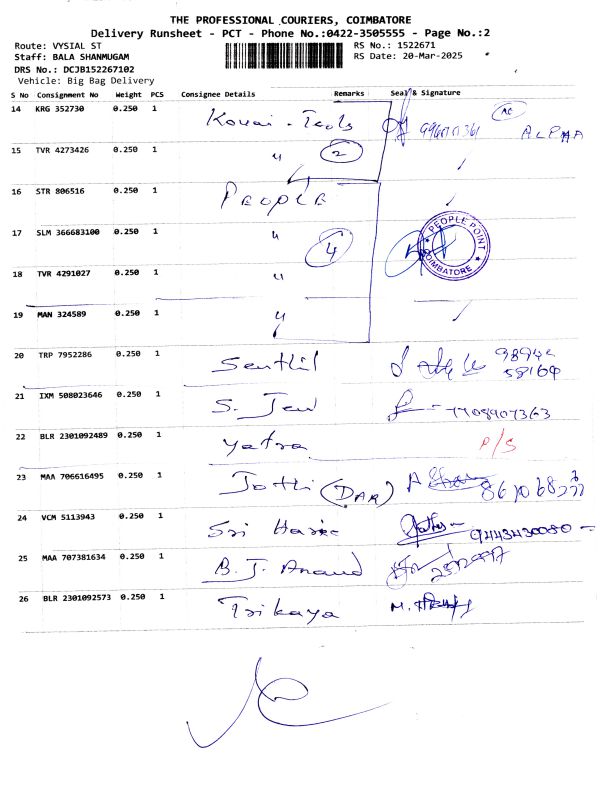 THE PROFESSIONAL COURIERS, COIMBATORE
Delivery Runsheet - PCT - Phone No.:0422-3505555 - Page No.:2
Route: VYSIAL ST RS No.: 1522671
Staff: BALA SHANMUGAM RS Date: 20-Mar-2025
DRS No.: DCJB152267102
Vehicle: Big Bag Delivery
S No Consignment No Weight PCS Consignee Details Remarks Seal & Signature
14 KRG 352730 0.250 1 Kovai - Tools ALPHA
15 TVR 4273426 0.250 1 " 2
16 STR 806516 0.250 1 PEOPLE
17 SLM 366683100 0.250 1 " 4 PEOPLE POINT COIMBATORE
18 TVR 4291027 0.250 1 "
19 MAN 324589 0.250 1 "
20 TRP 7952286 0.250 1 Senthil 98942
58164
21 IXM 508023646 0.250 1 S. Jew 7708907363
22 BLR 2301092489 0.250 1 Yatra P/S
23 MAA 706616495 0.250 1 Jothi (DAR)
24 VCM 5113943 0.250 1 Sri Harie 9443430080
25 MAA 707381634 0.250 1 B. J. Anand
26 BLR 2301092573 0.250 1 Trikaya M.